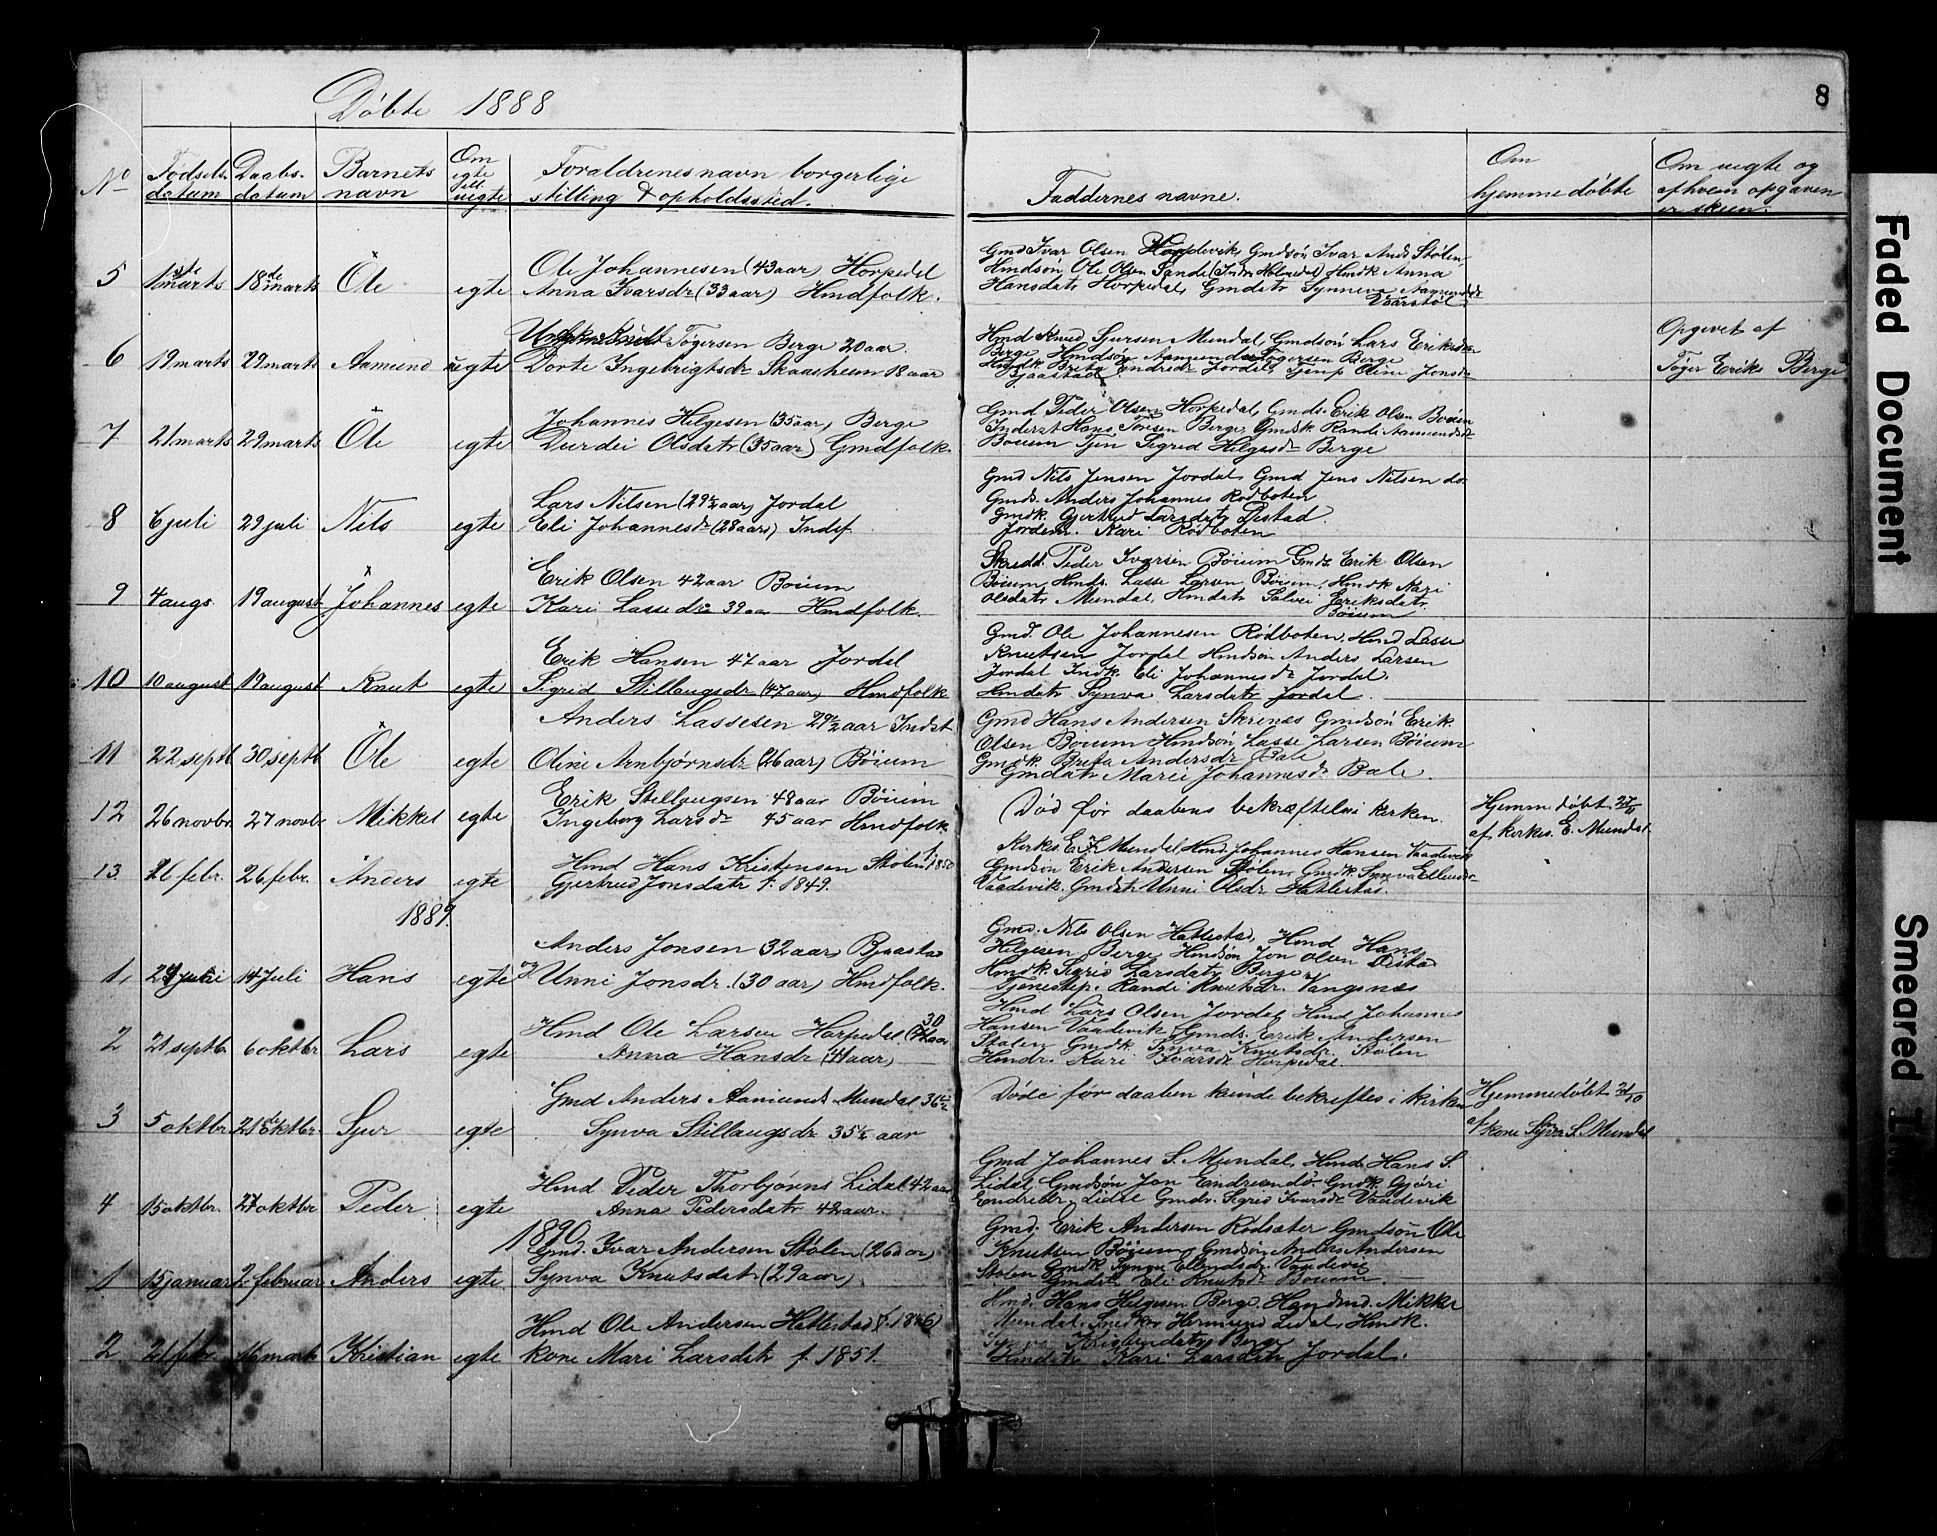 Döbte 1888
8
No
Fødsels-
datum
Daabs-
datum
Barnets
navn
Om
egte
ell.
uegte
Foraldrenes navn borgerlige
stilling & opholdssted.
Faddernes navne.
Om
hjemmedöbte
Om uegte og
af hvem opgaven
er skeen.
5 1ste marts 18de marts Ole egte
Ole Johannesen (43 aar) Horpedal
Anna Ivarsdr (33 aar) Hmdfolk.
Gmd Ivar Olsen Horpedvik, Gmdsön Ivar Ands Stölen,
Hmdsön Ole Olsen Sande (Indre Holmedal) Hmdk Anna
Hansdatr Horpedal, Gmdatr Synneva Aamundsdr
Vaarstöl
6 19 marts 29 marts Aamund uegte
Ungk Knut Tögersen Berge 20 aar.
Dorte Ingebrigtsdr Skaasheim 18 aar
Hmd Knud Sjursen Mundal Gmdsön Lars Eriksen
Berge, Hmdsön Aamund Tögersen Berge
Hmdk. Brita Endredr Jordal, Tjenp Oline Jonsdr
Bjaastad
Opgivet af
Töger Eriks Berge
7 21 marts 29 marts Ole egte
Johannes Helgesen (35 aar) Berge
Durdei Olsdatr (35 aar) Gmdfolk.
Gmd Peder Olsen Horpedal, Gmds. Erik Olsen Böium
Inderst Hans Toresen Berge, Gmdk Randi Aamundsdr
Böium Tjen Sigrid Helgesdr Berge
8 6 juli 29 juli Nils egte
Lars Nilsen (29½ aar) Jordal
Eli Johannesdr (28 aar) Indsf.
Gmd Nils Jensen Jordal, Gmd Jens Nilsen do.
Gmds. Anders Johannes Rödboten
Gmdk. Gjertrud Larsdatr Distad.
Jordem. Kari Rödboten
9 4 augs. 19 august Johannes egte
Erik Olsen 42 aar Böium
Kari Lassedr 39 aar Hmdfolk.
Skredd. Peder Ivarsen Böium Gmds Erik Olsen
Böium, Hmds. Lasse Larsen Böium, Hmdk Kari
Olsdatr Mundal, Hmdatr Salvei Eriksdatr
Böium
10 10 august 19 august Knut egte
Erik Hansen 47 aar Jordal
Sigrid Stillaugsdr (47 aar) Hmdfolk
Gmd. Ole Johannesen Rödboten, Hmd Lasse
Knutsen Jordal Hmdsön Anders Larsen
Jordal Indk. Eli Johannesdr Jordal.
Hmdatr Synva Larsdatr Jordal.
11 22 septb 30 septb Ole egte
Anders Lassesen 29½ aar Indst
Oline Arnbjørnsdr (26 aar) Böium
Gmd Hans Andersen Skrenæs Gmdsön Erik
Olsen Böium Hmdsön Lasse Larsen Böium
Gmdk Brita Andersdr Bale
Gmdatr Marie Johannesdr Bale.
12 26 novbr. 27 novbr Mikkel egte
Erik Stellaugsen 48 aar Böium
Ingeborg Larsdr 45 aar Hmdfolk
Död för daabens bekræftelse i kirken.
Hjemmedöbt 27/11
af kirkes. E. Mundal.
13. 26 febr. 26. febr. Anders egte
Hmd Hans Kristensen Stölen f. 1850
Gjertrud Jonsdatr f. 1849.
Kirkes. E. K. Mundal, Hmd. Johannes Hansen Vaadevik
Gmdsön Erik Andersen Stölen, Gmdk. Synva Ellendsdr
Vaadevik. Gmdatr Unni Olsdr Hatlestad.
1889.
1, 29 Juni 14 Juli Hans egte
Anders Jonsen 32 aar Bjaastad
og Unni Jonsdr. (30 aar) Hmdfolk.
Gmd. Nils Olsen Hatlestad, Hmd Hans
Helgesen Berge Hmdsön Jon Olsen Distad
Hmdk. Sigrid Larsdatr Berge
Tjenestep. Randi Knutsdr. Vangsnæs
2 21 septbr. 6 oktbr Lars egte
Hmd Ole Larsen Horpedal (30 aar)
Anna Hansdr (41 aar)
Hmd Lars Olsen Jordal, Hmd Johannes
Hansen Vaadevik, Gmds. Erik Andersen
Stölen Gmdk Synva Knutsdr. Stölen
Hmdr. Kari Ivarsdr Horpedal.
3 5 oktbr. 21de oktbr. Sjur egte
Gmd Anders Aamunds Mundal 36½
Synva Stillaugsdr 35½ aar
Döde för daaben kunde bekreftes i kirken
Hjemmedöbt 21/10
af kone Synva S. Mundal
4 15 oktbr. 27 oktbr Peder egte
Hmd Peder Thorbjörns Lidal 42 aar
Anna Pedersdatr 42 aar.
Gmd Johannes S. Mundal, Hmd. Hans S.
Lidal Gmdsön Jon Endresen do. Gmdk. Gjöri
Endredr. Lidal Gmdr. Sigrid Ivarsdr Vaadevik
1890
1 15 januar 2 februar Anders egte
Gmd. Ivar Andersen Stölen (26 aar)
Synva Knutsdatr (29 aar)
Gmd. Erik Andersen Rödseter Gmdsön Ole
Knutsen Böium, Gmdsön Anders Andersen
Stölen Gmdk Synva Ellendsdr. Vaadevik
Gmdatr Eli Knutsdr Böium.
2 21 febr. 16 marts Kristian egte
Hmd Ole Andersen Hatlestad (f. 1846)
kone Mari Larsdatr f. 1851.
Hmd. Hans Helgesen Berge, Handmd. Mikkel
Mundal, Snedker Hermund Lidal, Hmdk.
Synva Kristendatr Berge
Hmdatr Kari Larsdatr Jordal.
Faded Document
Smeared